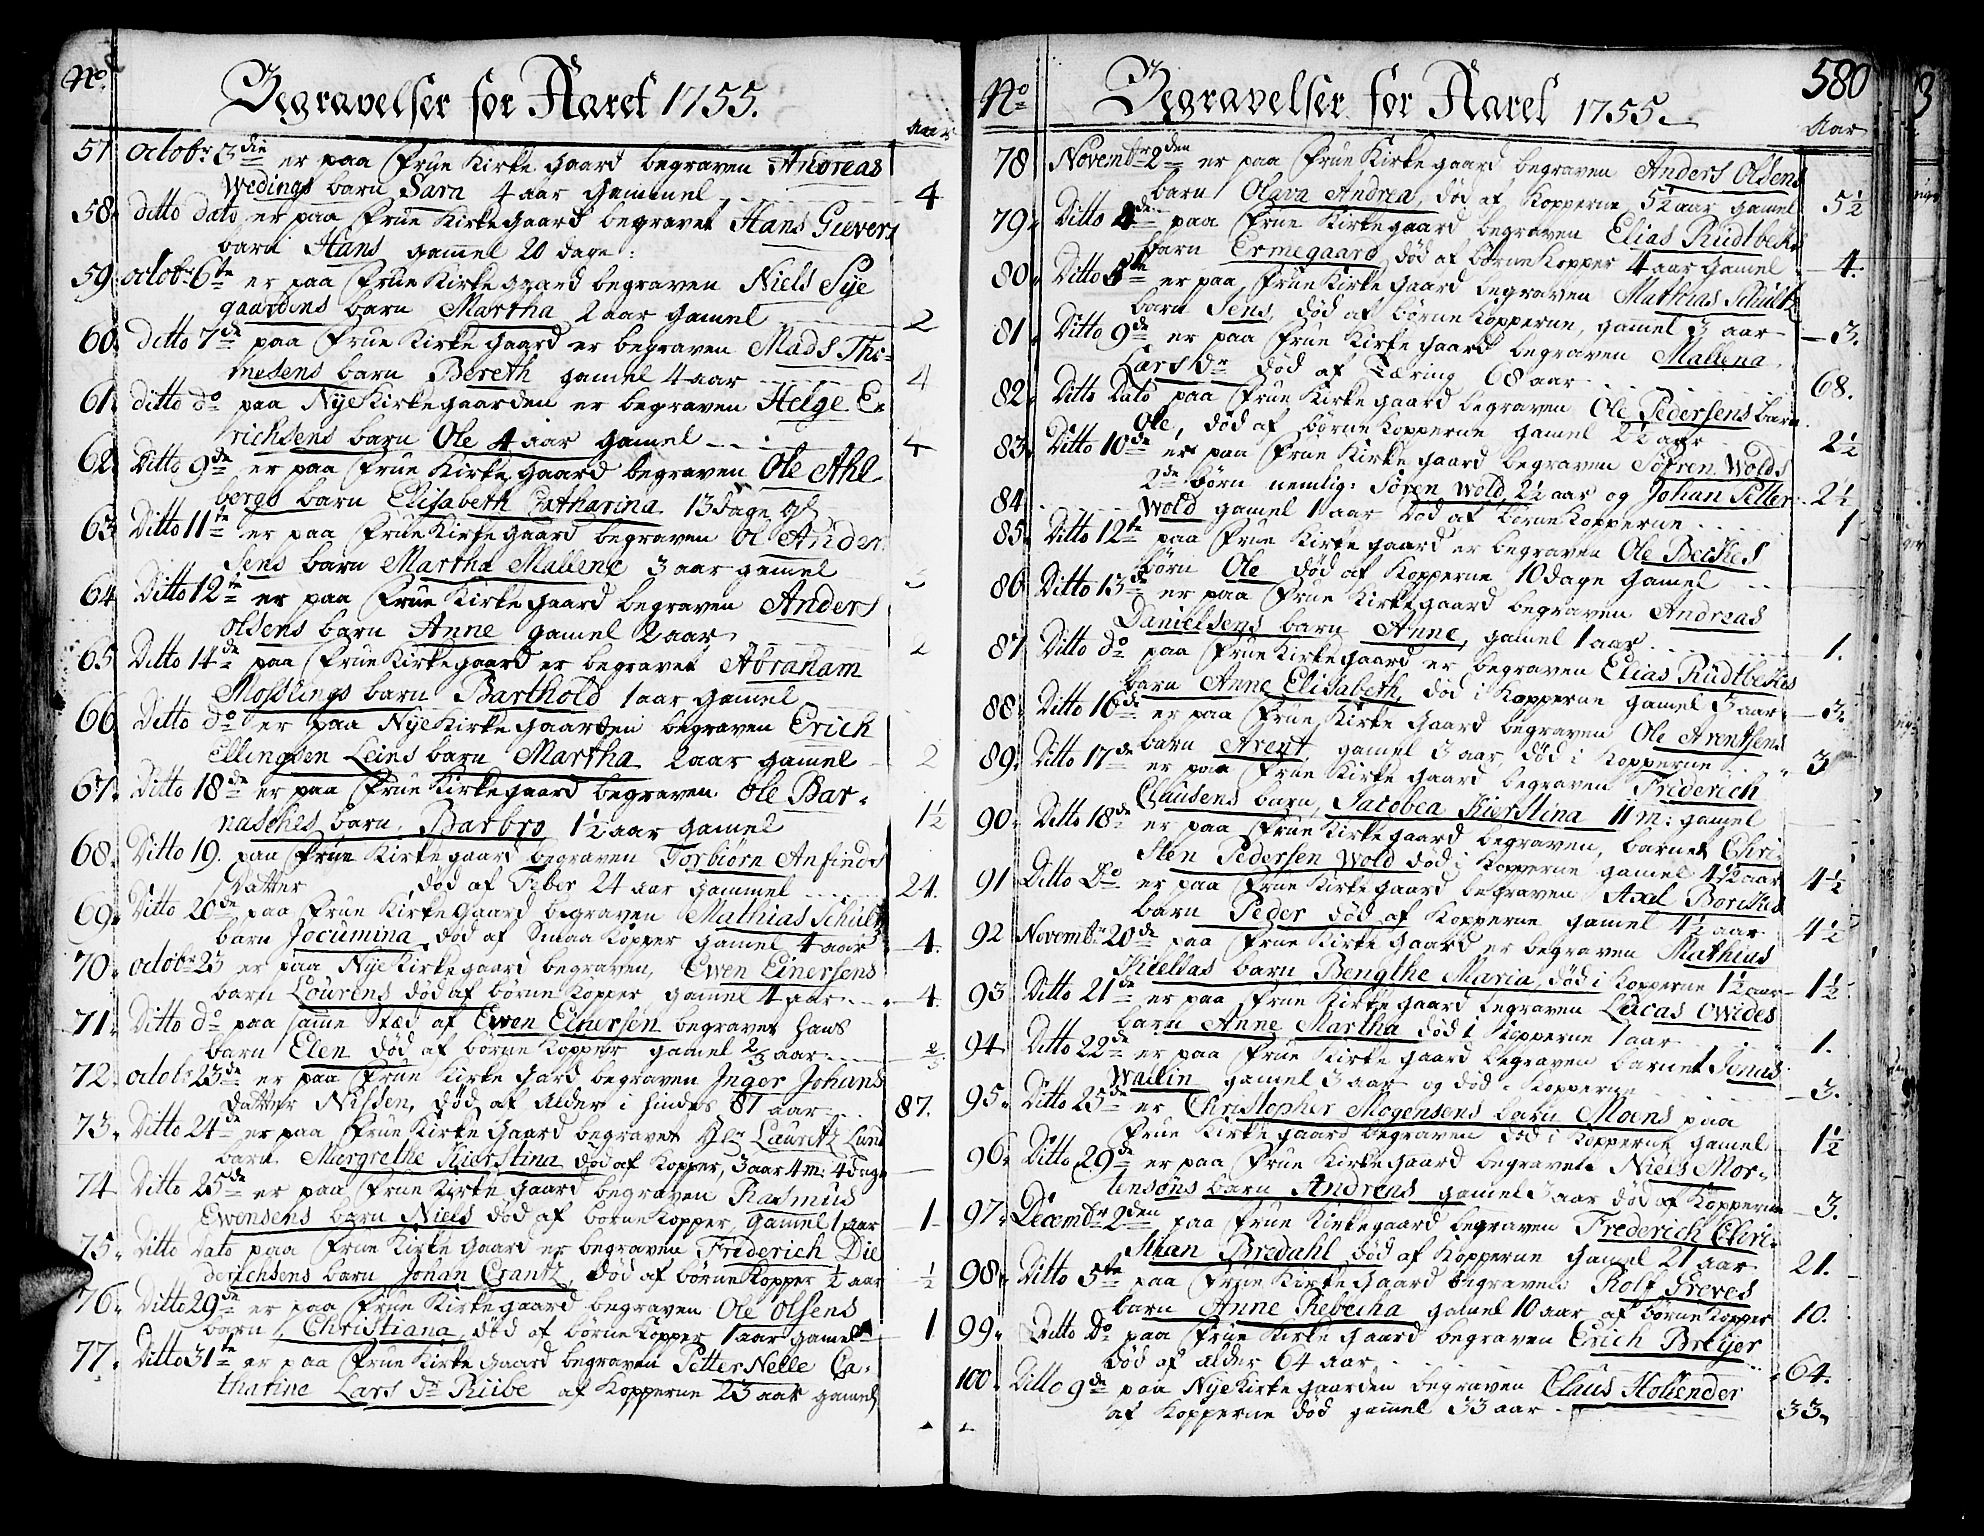 No.
Begravelser for Aaret 1755.
Aar
57 Octobr 3die er paa Frue Kirke Gaard begraven Andreas
Wedings barn Sara 4 aar Gammel 4
58. ditto dato er paa Frue Kirke Gaard begravet Hans Gievers
barn Hans gamel 20 dage.
59. octobr 6te er paa Frue Kirke Gaard begraven Niels Sye
gaardens barn Martha 2 aar Gamel 2
60. ditto 7de paa Frue Kirke Gaard er begraven Mads Tho-
mesens barn Bereth gamel 4 aar 4
61. ditto do paa Nye Kirkegaarden er begraven Helge E-
richsens barn Ole 4 aar Gamel 4
62. Ditto 9de er paa Frue Kirke Gaard begraven Ole Ahl
bergs barn Elisabeth Catharina 13 dage gl
63 Ditto 11te er paa Frue Kirke Gaard begraven Ol Ander
Sens barn Martha Mallene 3 aar gamel 3
64 Ditto 12te er paa Frue Kirke Gaard begraven Anders
Olsens barn Anne gamel 2 aar 2
65 Ditto 14de paa Frue Kirke Gaard er begravet Abraham
Mosslings barn Barthold 1 aar Gamel
66 Ditto do er paa Nye Kirke Gaarden begraven Erich
Ellingsen Leins barn Martha 2 aar Gamel 2
67. Ditto 18de er paa Frue Kirke Gaard begraven Ole Bar-
naskes barn Barbro 1½ aar Gamel 1½
68. Ditto 19. paa Frue Kirke gaard begraven Torbiørn Anfinds
Datter død af Feber 24 aar Gammel 24.
69. Ditto 20de paa Frue Kirke Gaard begraven Mathias Schultz
barn Jocumina død af Smaa Kopper Gamel 4 aar 4.
70. octobr 23 er paa Nye Kirke Gaard begraven, Ewen Einersens
barn Lourens død af børne Kopper, gamel 4 aar 4.
71. Ditto do paa samme Sted af Ewen Einersen begravet hans
barn Elen død af børne Kopper gamel 2/3 aar 2/3
72. octobr 23de er paa Frue Kirke Gard begraven Inger Johans
Datter Nissen, død af Alder i hindes 87 aar 87.
73. Ditto 24de er paa Frue Kirke Gaard begravet Hr Lauritz Lund
barn Margrethe Kierstina død af Kopper, 3 aar 4 m: 4 dage
74 Ditto 25de er paa Frue Kirke Gaard begraven Rasmus
Ewensens barn Niels død af børne Kopper, gamel 1 aar 1
75. Ditto Dato paa Frue Kirke Gaard er begraven Friderich Die
derichsens barn Johan Crantz død af børne Kopper ½ aar ½
76. Ditto 29de er paa Frue Kirke gaard begraven Ole Olsens
barn Christiana død af børne Kopper 1 aar gamel 1
77. Ditto 31te er paa Frue Kirke Gaard begraven Petter Nelle Ca-
tharine Lars Dr Riibe af Kopperne 23 aar gamel
580
No
Begravelser for Aaret 1755.
Aar
78 Novembr 2den er paa Frue Kirke gaard begraven Anders Olsens
barn Olava Andrea, død af Kopperne 5½ aar gamel 5½
79. Ditto 4de paa Frue Kirke gaard begraven Elias Rüdtbeks
barn Ermegaard død af børne Kopper 4 aar Gamel 4.
80. Ditto 5te er paa Frue Kirke Gaard begraven Mathias Schultz
barn Jens, død af børne Kopperne, gamel 3 aar 3.
81. Ditto 9de er paa Frue Kirke Gaard begraven Mallena
Lars dr død af Tæring 68 aar 68.
82. Ditto Dato paa Frue Kirke Gaard begraven Ole Pedersens barn
Ole, død af børne Kopperne gamel 2½ aar 2½
83. Ditto 10de er paa Frue Kirke Gaard begraven Søfren Wolds
2de børn nemlig: Søren Wold, 2½ aar og Johan Petter 2½
84. Wold gamel 1 aar død af børne Kopperne 1
85. Ditto 12te paa Frue Kirke Gaard er begraven Ole Beckes
børn Ole død af Kopperne 10 dage Gamel
86 Ditto 13de er paa Frue Kirke Gaard begraven Andreas
Danielsens barn Anne, gamel 1 aar 1.
87 Ditto do paa Frue Kirke Gaard er begraven Elias Rüdtbekes
barn Anne Elisabeth, død i Kopperne gamel 3 aar. 3.
88. Ditto 16de er paa Frue Kirke Gaard begraven Ole Arentsens
barn Arent gamel 3 aar, død i Kopperne 3
89. Ditto 17de er paa Frue Kirke Gaard begraven Friderich
Clausens barn, Jacobea Kierstina 11 m: gamel
90. Ditto 18de er paa Frue Kirke gaard begraven, barnet Chri-
sten Pedersen Wold død i Kopperne gamel 4½ aar 4½
91 Ditto Do er paa Frue Kirke Gaard begraven Axel Borckes
barn Peder død af Kopperne gamel 4½ aar 4½
92 Novembr 20de paa Frue Kirke Gaard er begraven Mathius
Kilellas barn Bengthe Maria, død i Kopperne 1½ aar 1½
93 Ditto 21de er paa Frue Kirke Gaard begraven Lucas Owides
barn Anne Martha død i Kopperne 1 aar 1.
94. Ditto 22de er paa Frue Kirke Gaard begraven barnet Jonas
Wallin gamel 3 aar og død i Kopperne 3.
95. Ditto 25de er Christopher Mogensens barn Moens paa
Frue Kirke Gaard begraven død i Kopperne gamel 1½
96. Ditto 29de er paa Frue Kirke Gaard begraven Niels Mor-
tensøns barn Andrens gamel 3 aar død af Kopperne 3.
97. Decembr 2den paa Frue Kirkegaard begraven Frederich Chri-
stian Bredahl død af Kopperne gamel 21 aar 21.
98. Ditto 5te paa Frue Kirke Gaard begraven Rolf Greves
barn Anne Rebecha gamel 10 aar af børne Kopper 10.
99. Ditto Do paa Frue Kirke Gaard begraven Erich Breyer
død af Alder 64 aar 64.
100. Ditto 9de paa Nye Kirke Gaarden begraven Claus Hollender
af Kopperne død gamel 33 aar 33.